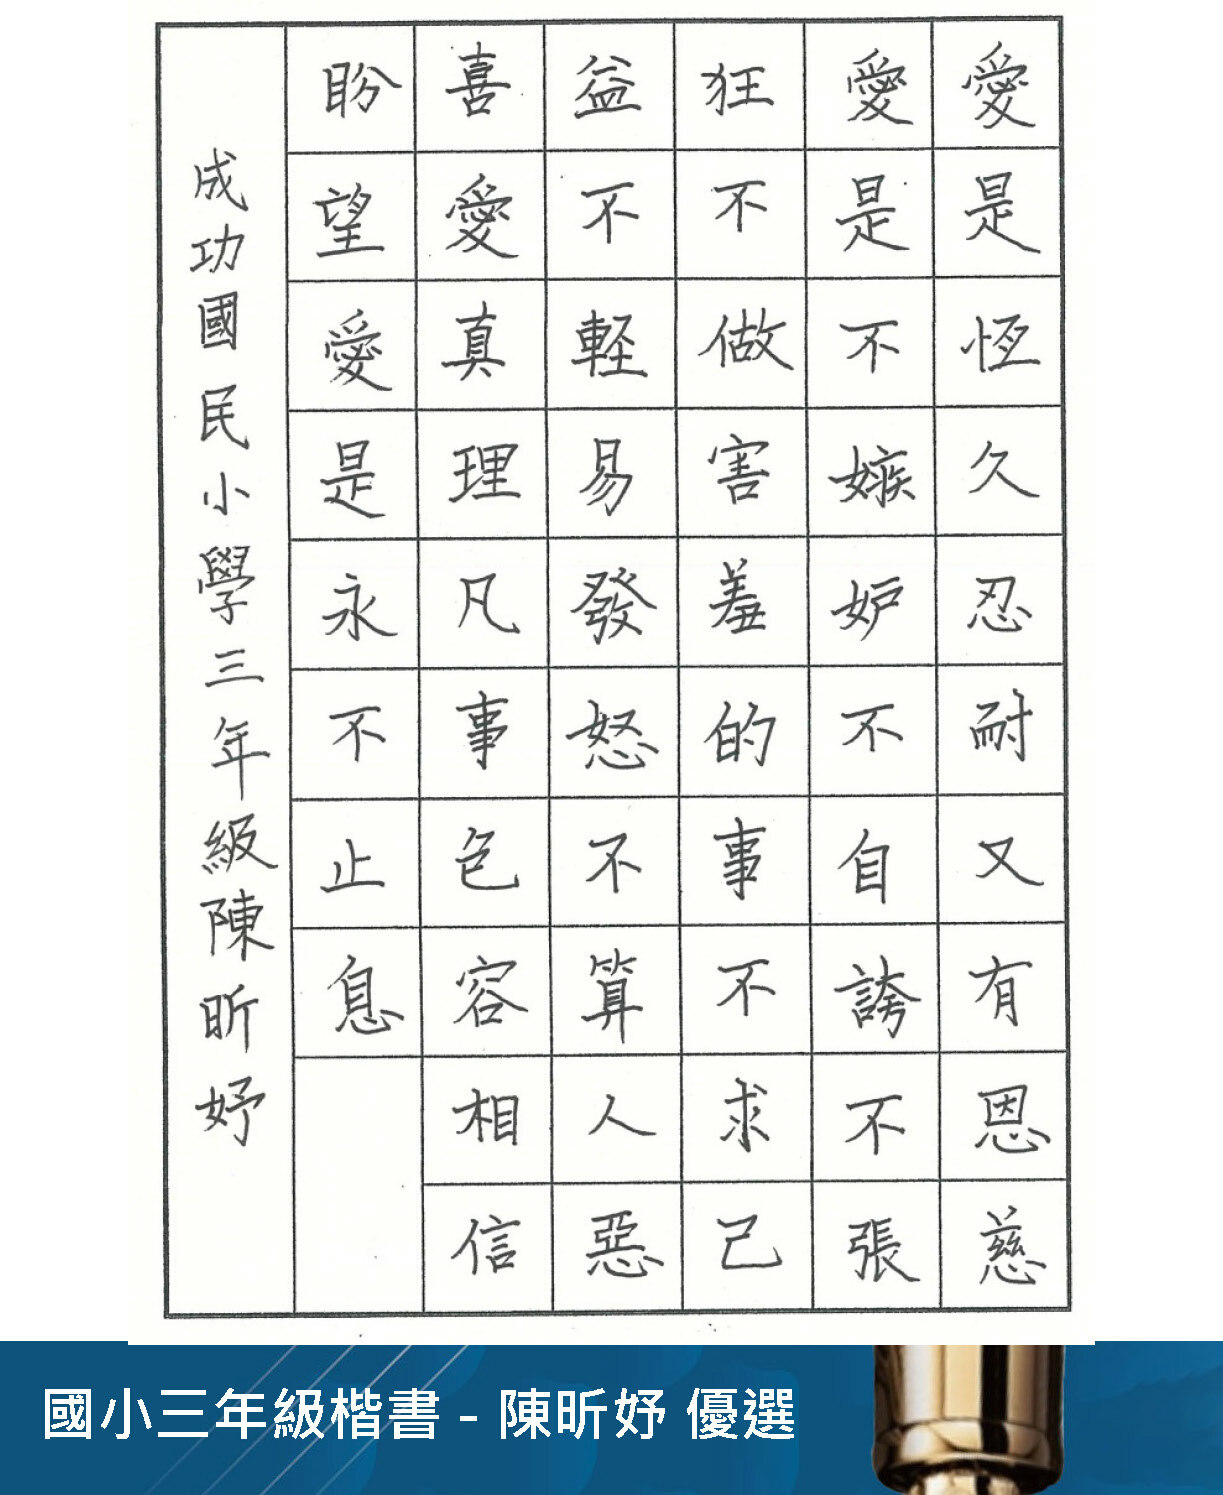 愛是恆久忍耐又有恩慈
愛是不嫉妒不自誇不張
狂不做害羞的事不求己
益不輕易發怒不算人惡
喜愛真理凡事色容相信
盼望愛是永不止息
成功國民小學三年級陳昕妤
國小三年級楷書 - 陳昕妤 優選